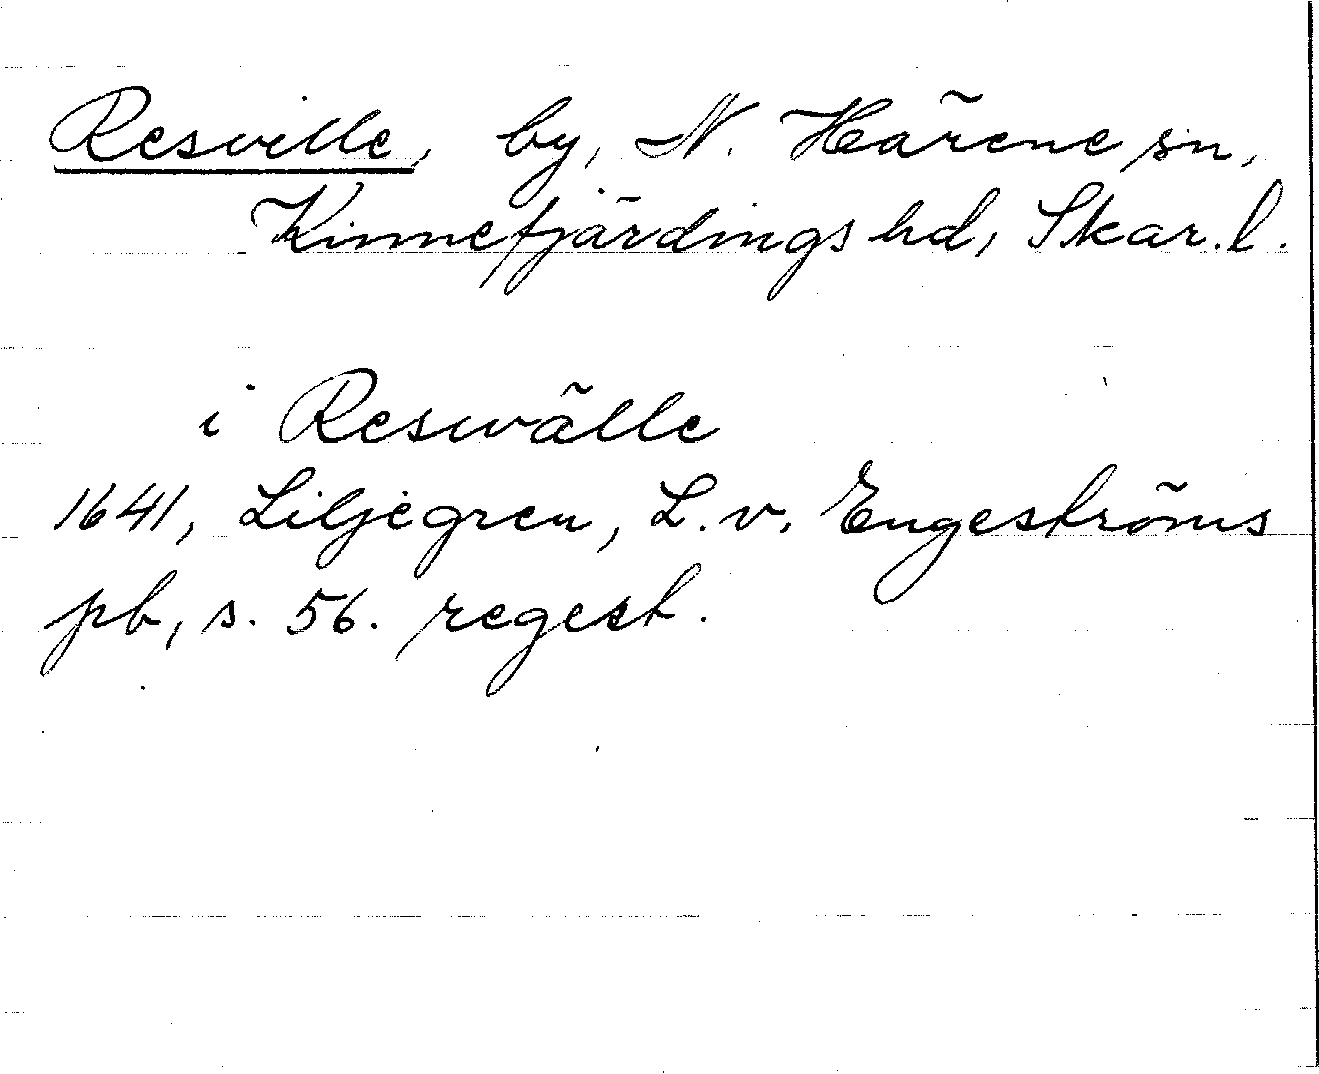 Resville, by, N. Härene sn,
Kinnefjärdings hd, Skar. l.
i Reswälle
1641, Liljegren, L. v. Engeströms
pb, s. 56. regest.